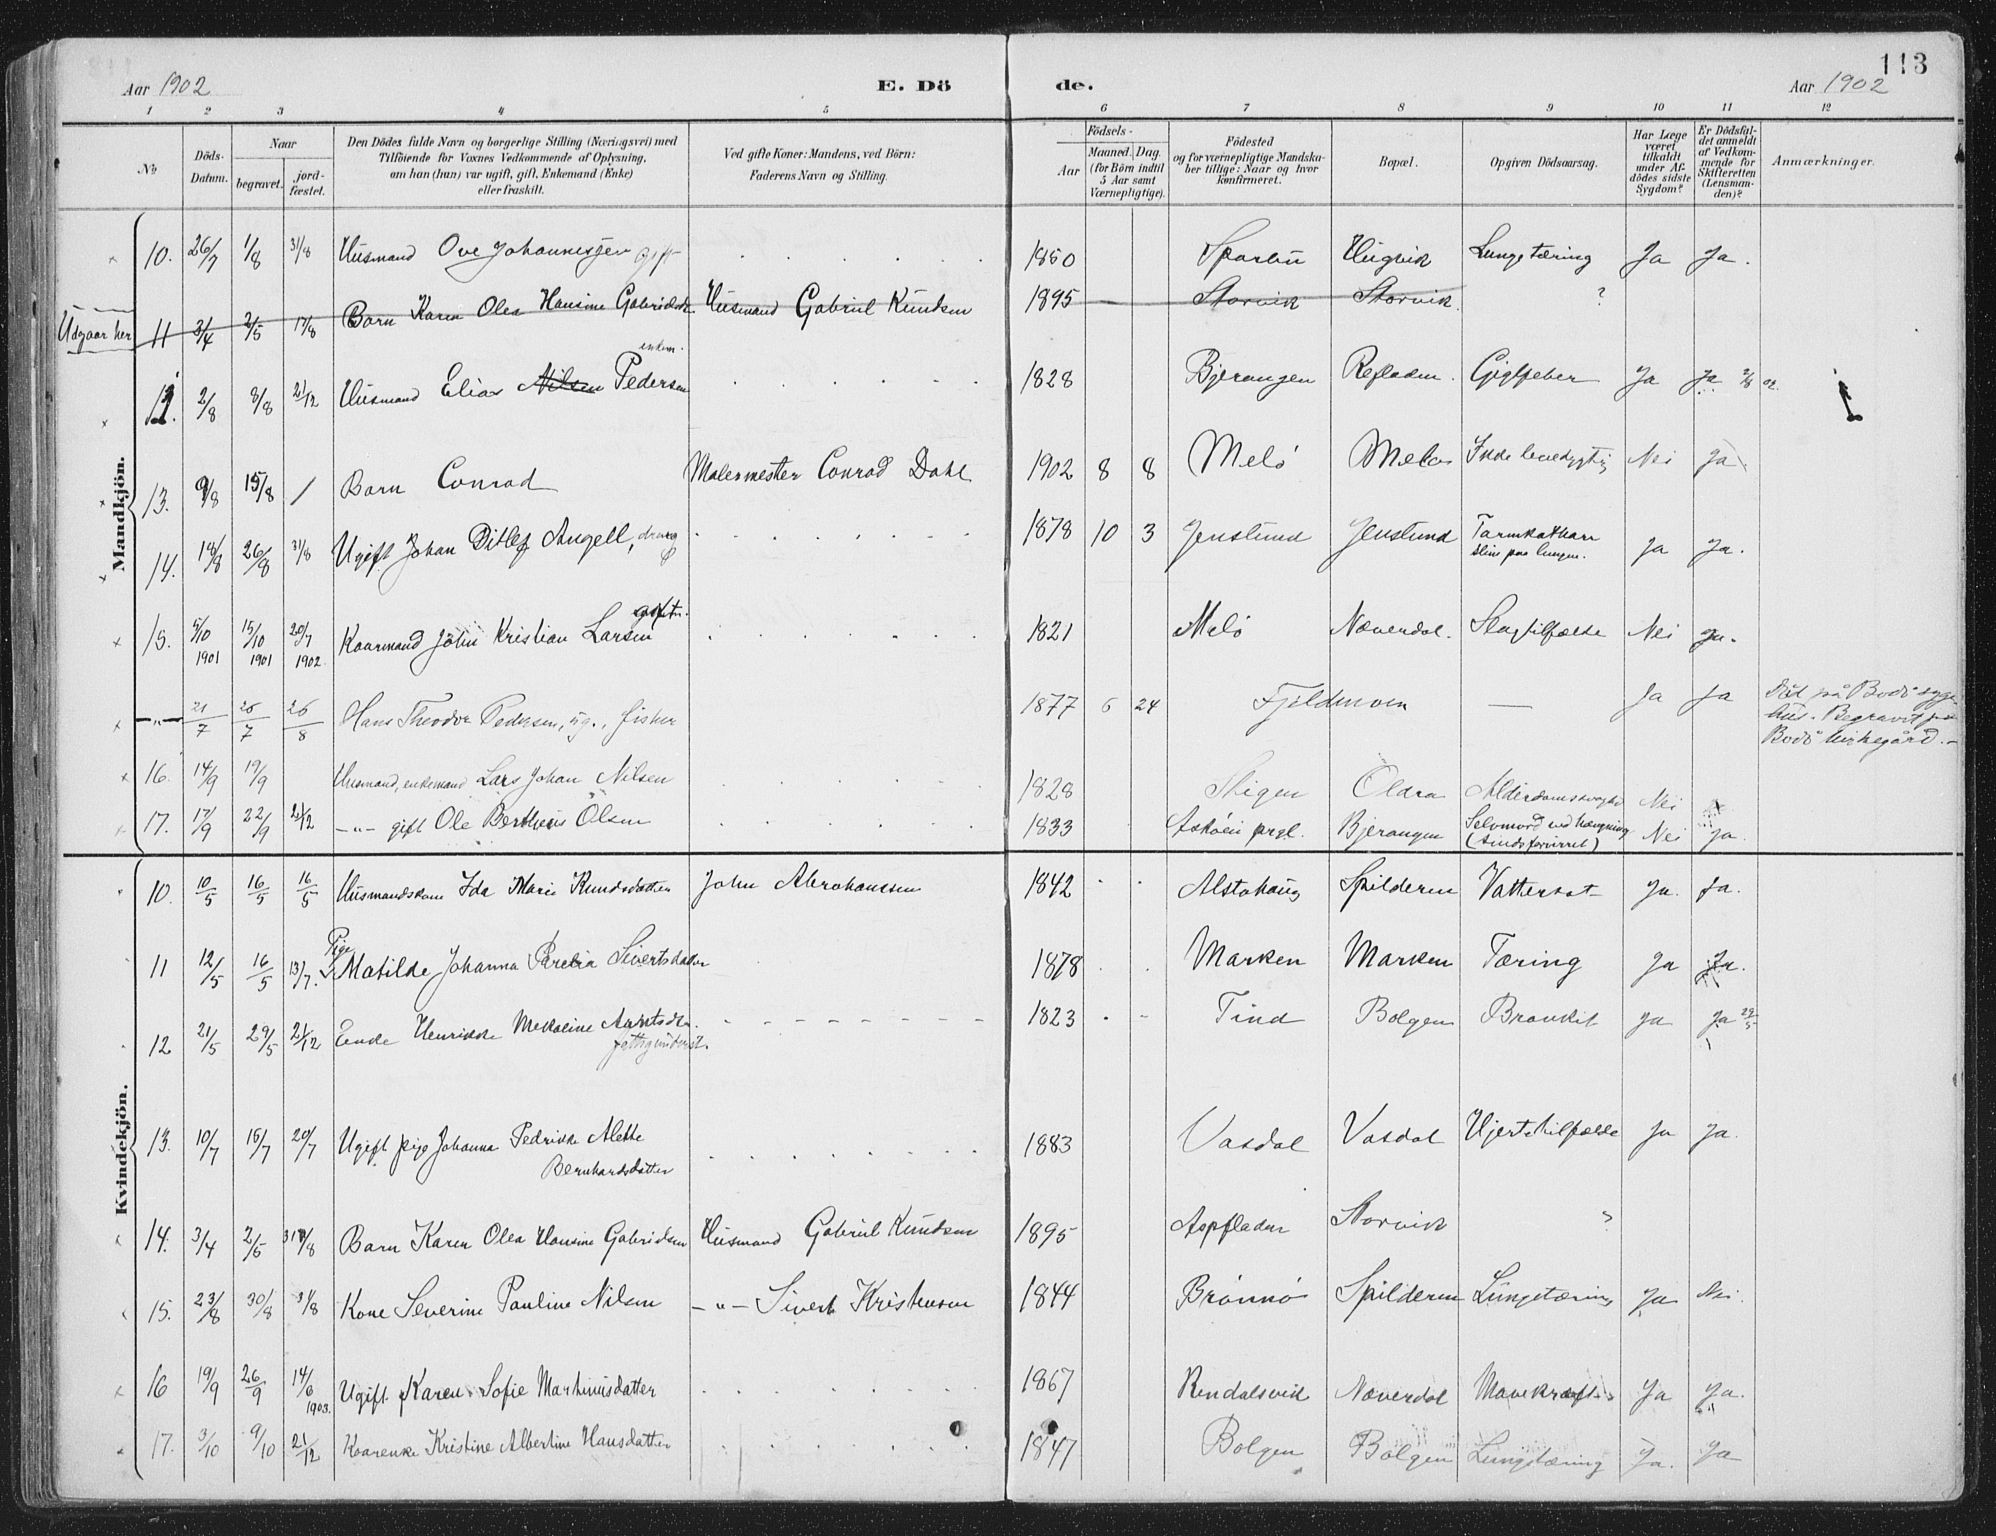 113
Aar 1902 E. Dö de. Aar 1902
1 2 3 4 5 6 7 8 9 10 11 12
No
Döds-Datum.
Naar
begravet.
jord-fæstet.
Den Dödes fulde Navn og borgerlige Stilling (Næringsvei) med
Tilföiende for Voxnes Vedkommende af Oplysning,
om han (hun) var ugift, gift, Enkemand (Enke)
eller fraskilt.
Ved gifte Koner: Mandens, ved Börn:
Faderens Navn og Stilling.
Födsels-
Aar
Maaned. Dag.
(for Börn indtil
5 Aar samt
Værnepligtige).
Födested
og for værnepligtige Mandska-
ber tillige: Naar og hvor
konfirmeret.
Bopæl.
Opgiven Dödsaarsag.
Har Læge
været
tilkaldt
under Af-
dödes sidste
Sygdom?
Er Dödsfal-
det anmeldt
af Vedkom-
mende for
Skifteretten
(Lensman-
den)?
Anmærkninger.
Mandkjön.
10. 26/7 1/8 31/8 Husmand Ove Johannesjen gift 1850 Sparbu Hugvik Lungetæring Ja Ja.
Udgaar her 11 3/4 2/5 17/8 Barn Karen Olea Hansine Gabrielsdr. Husmand Gabriel Knudsen 1895 Storvik Storvik ?
12. 2/8 8/8 21/12 Husmand Elias Nilsen Pedersen enkem. 1828 Bjerangen Refladen. Gigtfeber Ja Ja 2/8 02.
13. 9/8 15/8 / Barn Conrad Malermester Conrad Dahl 1902 8 8 Melö Melö Ikke levedygtig Nei Ja
14. 18/8 26/8 31/8 Ugift Johan Ditlef Angell, dreng 1878 10 3 Jenslund Jenslund Tarmkatharr
slim paa lungen. Ja Ja.
15. 5/10 1901 15/10 1901 20/7 1902. Kaarmand John Kristian Larsen 1821 Melö Næverdal. Slagtilfælde Nei Ja.
— " — 21/7 25/7 26/8 Hans Theodor Pedersen, ug., fisker 1877 6 24 Fjeldmoen — Ja Ja Död på Bodö syge
hus. Begravet på
Bodö kirkegård. –
16. 14/9 19/9 Husmand, enkemand Lars Johan Nilsen 1828 Skigen Oldra Alderdomssvaghed Nei
17. 17/9 22/9 21/12 –"– gift Ole Bertheus Olsen 1833 Asköen prgl. Bjerangen Selvmord ved hængning
(sindsforvirret) Nei Ja.
Kvindekjön.
10. 10/5 16/5 16/5 Husmandskone Ida Marie Knudsdatter John Abrahamsen 1842 Alstahaug Spilderen Vattersot Ja. Ja.
11 12/5 16/5 13/7. Pige Matilde Johanna Parelia Sivertsdatter 1878 Marken Marken Tæring Ja Ja.
12 21/5 29/5 21/12 Enke Henrikke Mekaline Arntsdtr.
fattigunderst. 1823 Tind Bolgen Bronkit Ja Ja 29/5
13. 10/7 15/7 20/7 Ugift pige Johanna Pedrikke Alette
Bernhardsdatter 1883 Vasdal Vasdal Hjertetilfælde Ja Ja.
14. 3/4 2/5 31/8 Barn Karen Olea Hansine Gabrielsen Husmand Gabriel Knudsen 1895 Aspfladen Storvik ?
15. 23/8 30/8 31/8 Kone Severine Pauline Nilsen –"– Sivert Kristensen 1844 Brönnö Spilderen Lungetæring Ja Nei.
16 19/9 26/9 14/6 1903. Ugift p Karen Sofie Martinusdatter 1867 Rendalsvik Næverdal Mavekræft Ja Ja.
17. 3/10 9/10 21/12 Kaarenke Kristine Albertine Hansdatter 1847 Bolgen Bolgen Lungetæring Ja. Ja